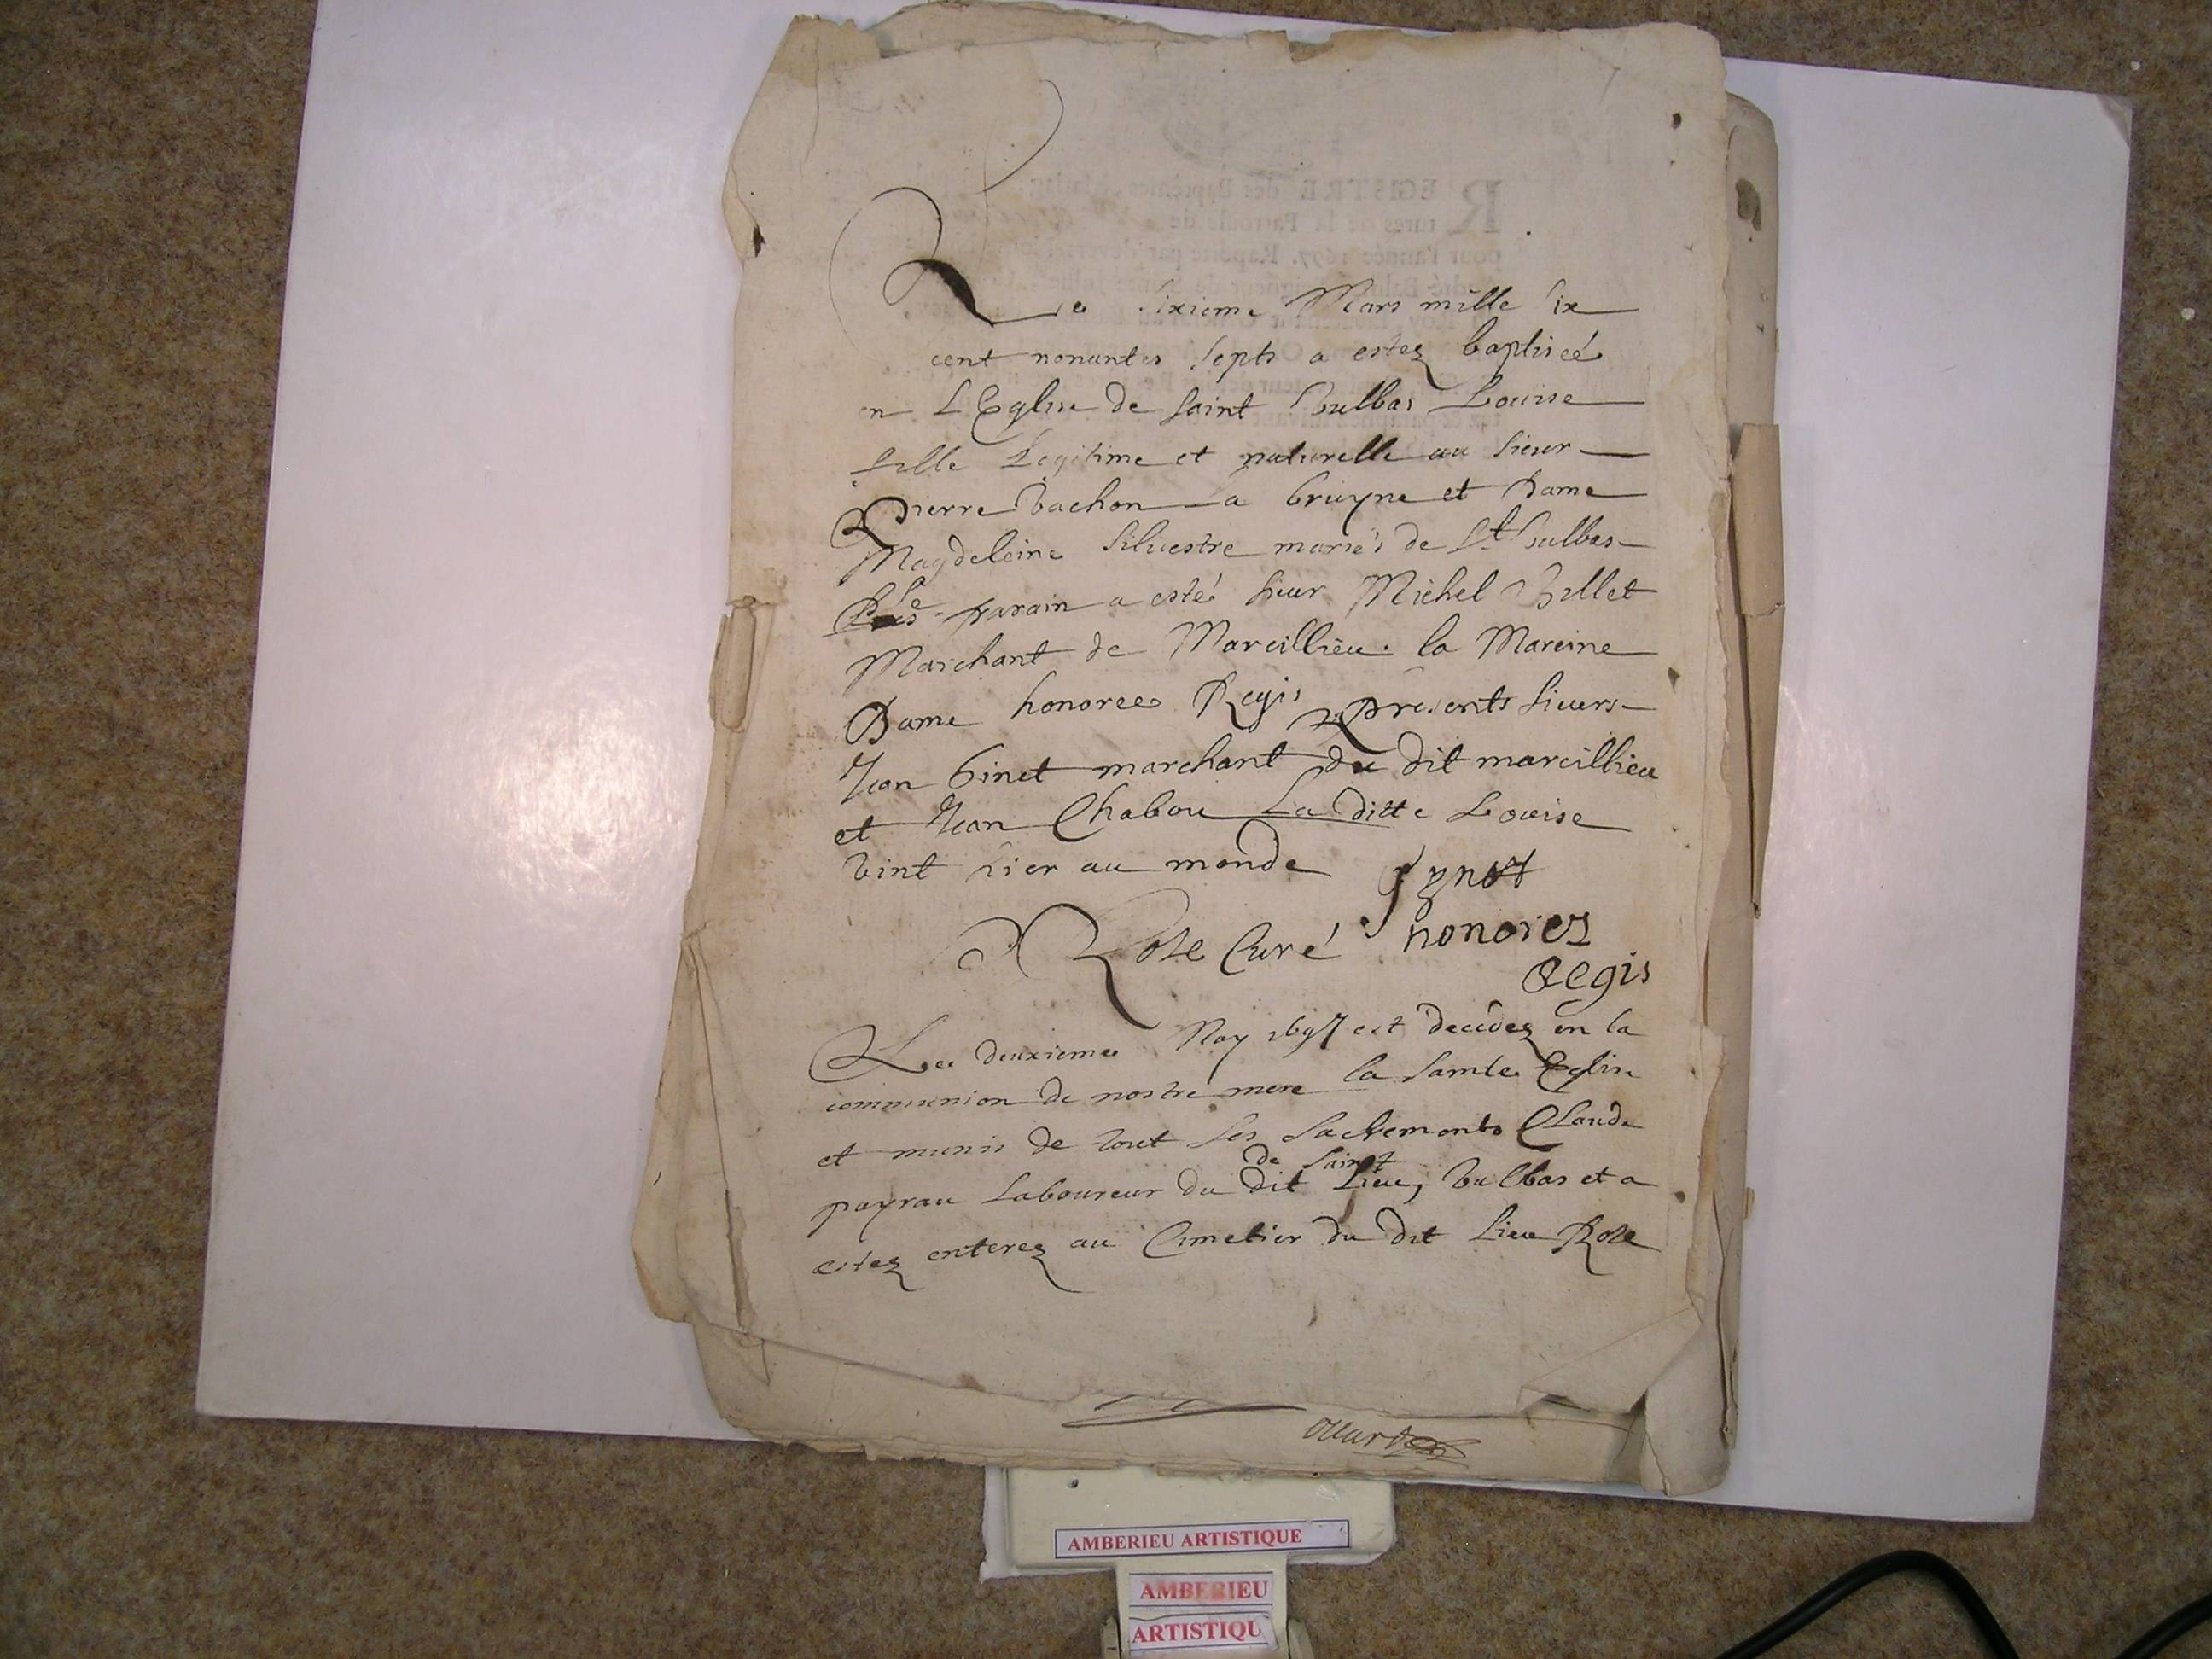 Le sixieme Mars mille six
cent nonantes septs a estez baptiseé
en L'Eglise de saint Vulbas Louise
fille Legitime et naturelle au sieur
Pierre Vachon La bruyne et Dame
Magdeleine Siluestre mariés de St Vulbas
Le parain a esté sieur Michel Billet
Marchant de Marcillieu. la Mareine
Dame honoree Regis presents sieurs
Jean Ginet marchant du dit marcillieu
et Jean Chabou La ditte Louise
vint hier au monde Gynet
Roze Curé honores
Regis
Le deuxieme May 1697 est decedez en la
communion de nostre mere la sainte Eglise
et munis de tout ses sacremonts Claude
de saint
payrau Laboureur du dit Lieu, Vulbas et a
estez enterez au Cimetier du dit Lieu Roze
REGISTRE des Baptêmes
tures de la Parroisse de
pour l'année 1697. Raporté par devers
AMBERIEU ARTISTIQUE
AMBERIEU
ARTISTIQU